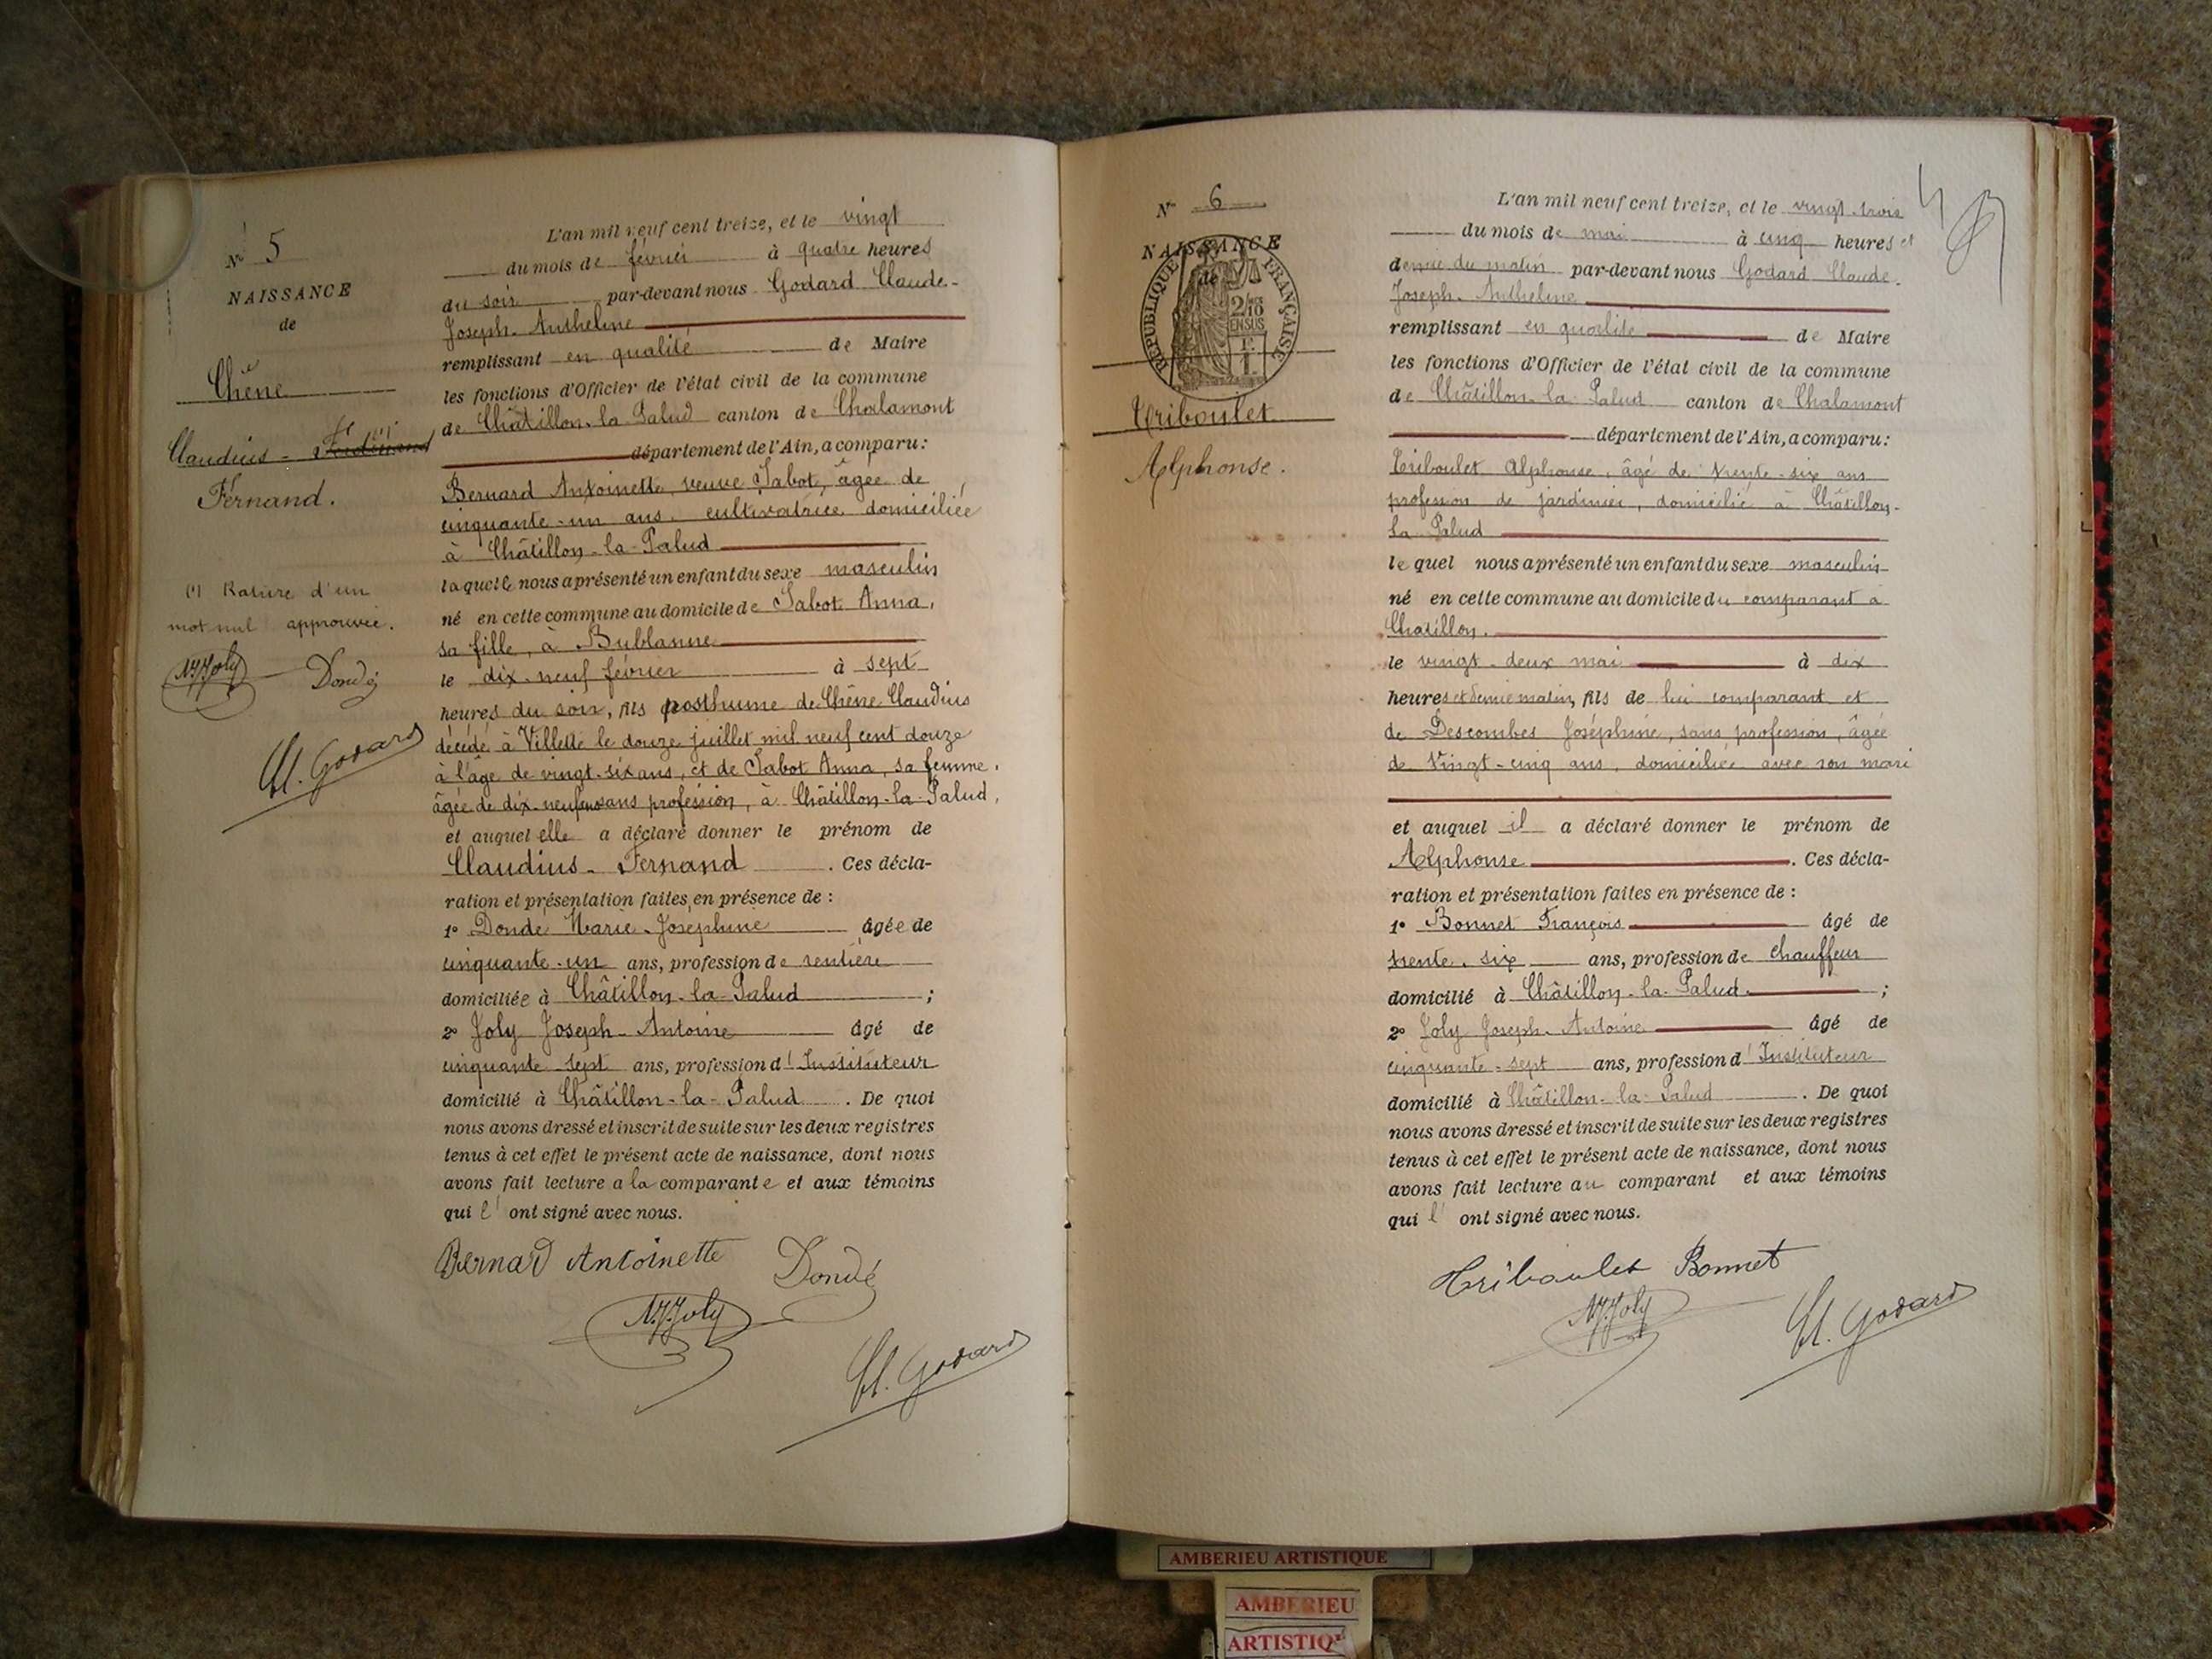 N° 5
NAISSANCE
de
Chêne
Claudius - Ferdinand (1)
Fernand.
(1) Rature d'un
mot nul approuvée.
Joly Dondé
Cl. Godard
L'an mil neuf cent treize, et le vingt
du mois de février à quatre heures
du soir par-devant nous Godard Claude-
Joseph-Anthelme
remplissant en qualité de Maire
les fonctions d'Officier de l'état civil de la commune
de Châtillon-la-Palud canton de Chalamont
département de l'Ain, a comparu:
Bernard Antoinette, veuve Sabot, âgée de
cinquante-un ans, cultivatrice domiciliée
à Châtillon-la-Palud
laquelle nous a présenté un enfant du sexe masculin
né en cette commune au domicile de Sabot Anna,
sa fille, à Bublanne
le dix-neuf février à sept
heures du soir, fils posthume de Chêne Claudius
décédé à Villette le douze juillet mil neuf cent douze
à l'âge de vingt-six ans, et de Sabot Anna, sa femme,
âgée de dix-neuf ans sans profession, à Châtillon-la-Palud,
et auquel elle a déclaré donner le prénom de
Claudius-Fernand. Ces décla-
ration et présentation faites en présence de :
1° Dondé Marie-Joséphine âgée de
cinquante-un ans, profession de rentière
domiciliée à Châtillon-la-Palud ;
2° Joly Joseph-Antoine âgé de
cinquante sept ans, profession d'Instituteur
domicilié à Châtillon-la-Palud. De quoi
nous avons dressé et inscrit de suite sur les deux registres
tenus à cet effet le présent acte de naissance, dont nous
avons fait lecture a la comparante et aux témoins
qui l' ont signé avec nous.
Bernard Antoinette Dondé
Joly
Cl. Godard
N° 6
NAISSANCE
de
RÉPUBLIQUE FRANÇAISE
2/10
EN SUS
Triboulet
Alphonse.
L'an mil neuf cent treize, et le vingt-trois
du mois de mai à cinq heures et
demie du matin par-devant nous Godard Claude-
Joseph-Anthelme
remplissant en qualité de Maire
les fonctions d'Officier de l'état civil de la commune
de Châtillon-la-Palud canton de Chalamont
département de l'Ain, a comparu:
Triboulet Alphonse, âgé de trente-six ans
profession de jardinier, domicilié à Châtillon-
la-Palud
lequel nous a présenté un enfant du sexe masculin
né en cette commune au domicile du comparant à
Chatillon.
le vingt-deux mai à dix
heures et demie matin, fils de lui comparant et
de Descombes Joséphine, sans profession, âgée
de vingt-cinq ans, domiciliée avec son mari
et auquel il a déclaré donner le prénom de
Alphonse. Ces décla-
ration et présentation faites en présence de :
1° Bonnet François âgé de
trente-six ans, profession de chauffeur
domicilié à Châtillon-la-Palud ;
2° Joly Joseph-Antoine âgé de
cinquante-sept ans, profession d'Instituteur
domicilié à Châtillon-la-Palud. De quoi
nous avons dressé et inscrit de suite sur les deux registres
tenus à cet effet le présent acte de naissance, dont nous
avons fait lecture au comparant et aux témoins
qui l' ont signé avec nous.
Triboulet Bonnet
Joly
Cl. Godard
AMBERIEU ARTISTIQUE
AMBERIEU
ARTISTIQ